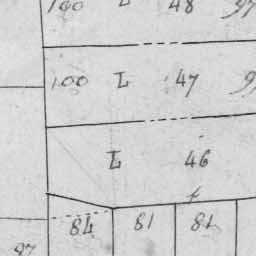 100 L 48 97
100 L 47 9
L 46
84 81 81
97